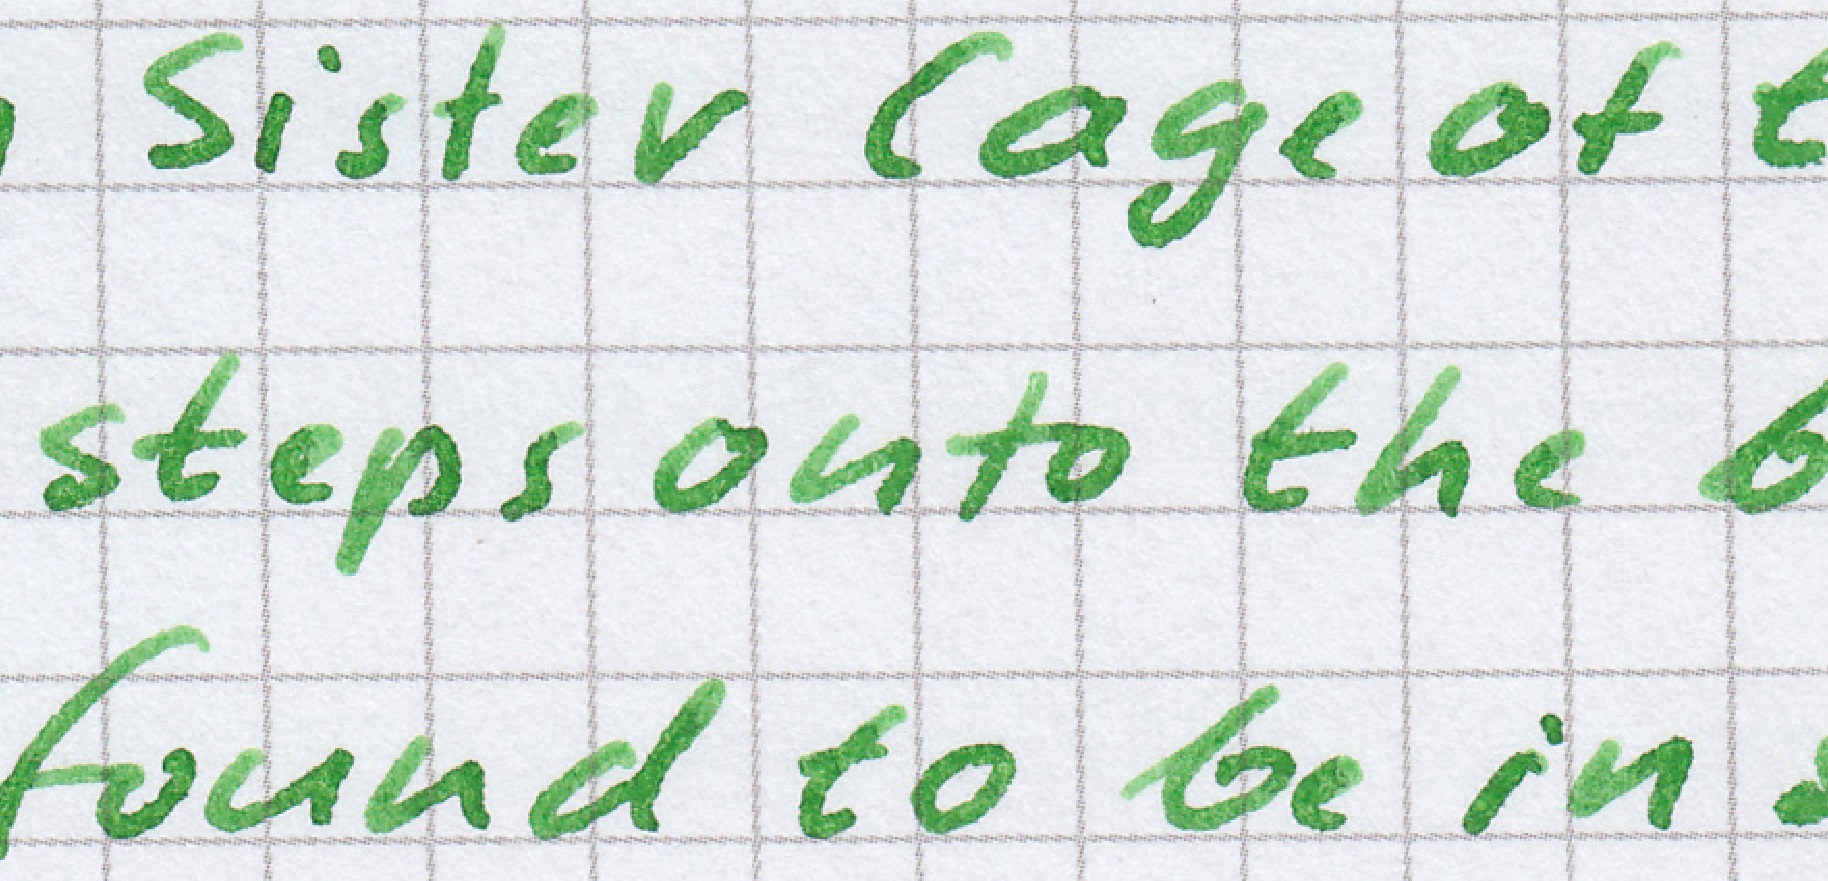 Sister Cage of
steps onto the
found to be in